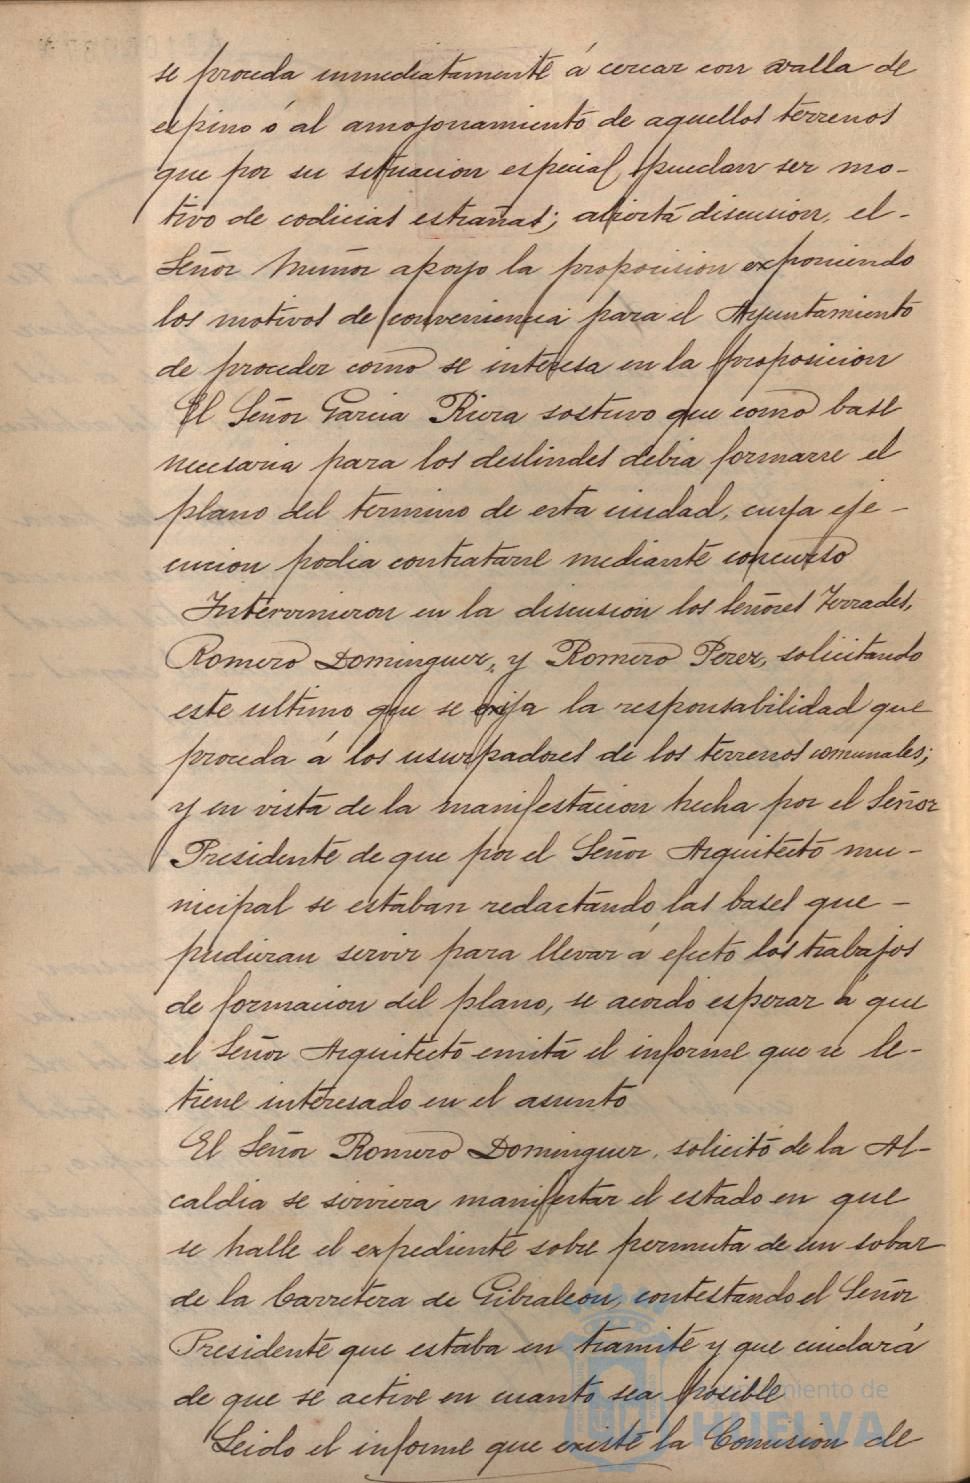 se proceda inmediatamente á cercar con valla de
espino ó al amojonamiento de aquellos terrenos
que por su situacion especial, puedan ser mo-
tivo de codicias estrañas; abierta discusion, el-
Señor Muñoz apoyo la proposicion exponiendo
los motivos de conveniencia para el Ayuntamiento
de proceder como se interesa en la proposicion
El Señor Garcia Riera sostuvo que como base
necesaria para los deslindes debia formarse el
plano del termino de esta ciudad, cuya eje-
cucion podia contratarse mediante concurso
Intervinieron en la discusion los Señores Terrades,
Romero Dominguez, y Romero Perez, solicitando
este ultimo que se exija la responsabilidad que
proceda á los usurpadores de los terrenos comunales;
y en vista de la manifestacion hecha por el Señor
Presidente de que por el Señor Arquitecto mu-
nicipal se estaban redactando las bases que-
pudieran servir para llevar á efecto los trabajos
de formacion del plano, se acordó esperar á que
el Señor Arquitecto emita el informe que se le-
tiene interesado en el asunto
El Señor Romero Dominguez, solicitó de la Al-
caldia se sirviera manifestar el estado en que
se halle el expediente sobre permuta de un solar
de la Carretera de Gibraleon, contestando el Señor
Presidente que estaba en tramite y que cuidará
de que se active en cuanto sea posible
Leido el informe que existe la Comision de
Ayuntamiento de
HUELVA